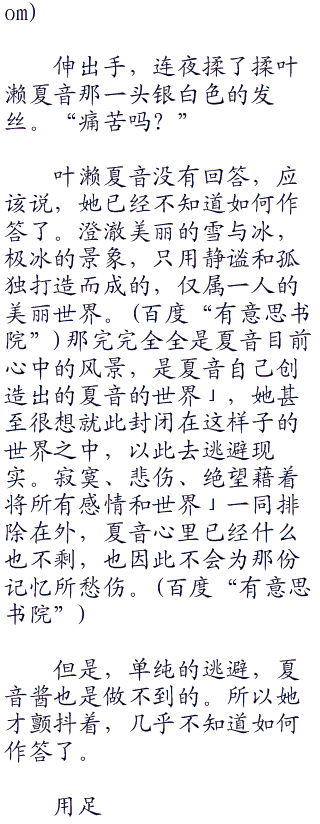 om)
伸出手，连夜揉了揉叶
濑夏音那一头银白色的发
丝。“痛苦吗？”
叶濑夏音没有回答，应
该说，她已经不知道如何作
答了。澄澈美丽的雪与冰，
极冰的景象，只用静谧和孤
独打造而成的，仅属一人的
美丽世界。(百度“有意思书
院”)那完完全全是夏音目前
心中的风景，是夏音自己创
造出的夏音的世界」，她甚
至很想就此封闭在这样子的
世界之中，以此去逃避现
实。寂寞、悲伤、绝望藉着
将所有感情和世界」一同排
除在外，夏音心里已经什么
也不剩，也因此不会为那份
记忆所愁伤。(百度“有意思
书院”)
但是，单纯的逃避，夏
音酱也是做不到的。所以她
才颤抖着，几乎不知道如何
作答了。
用足